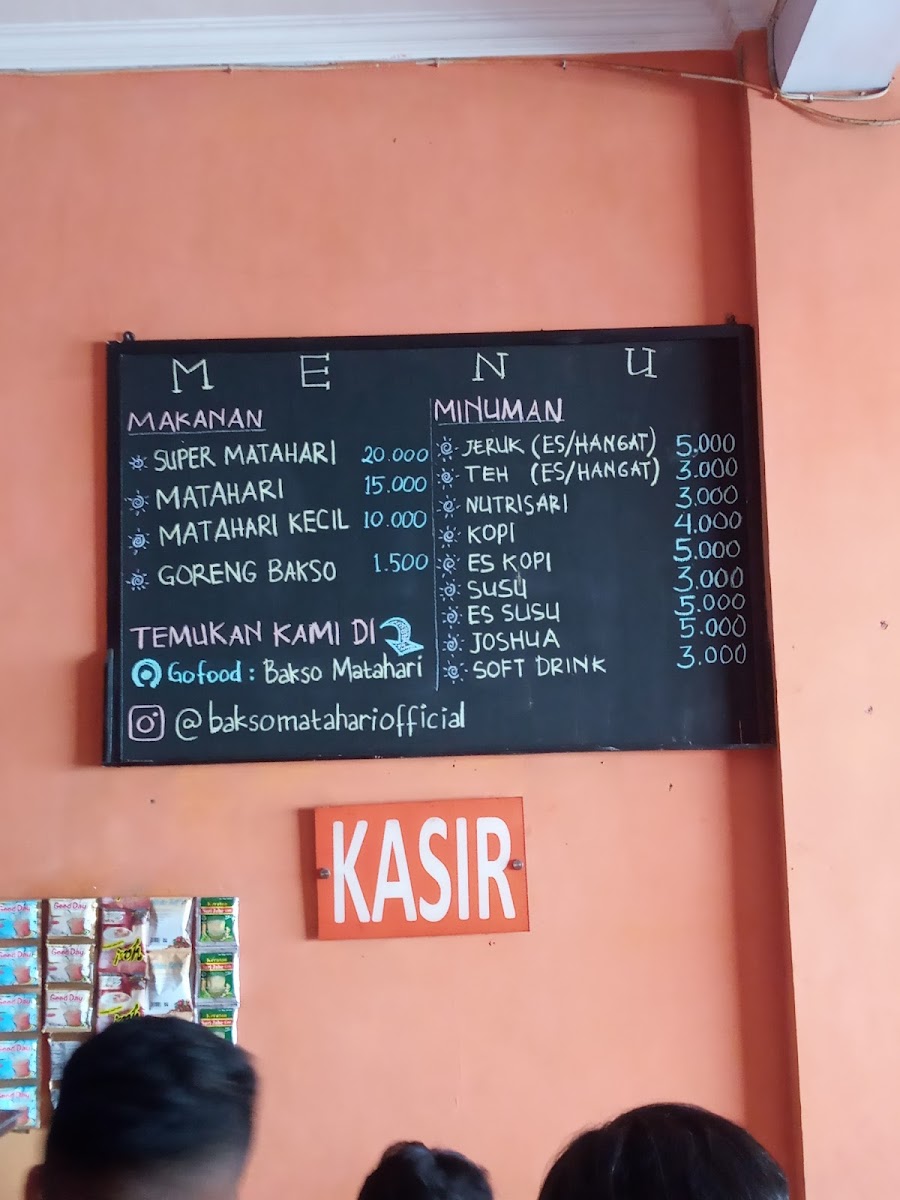 MENU
MAKANAN
SUPER MATAHARI 20.000
MATAHARI 15.000
MATAHARI KECIL 10.000
GORENG BAKSO 1.500
TEMUKAN KAMI DI
Gofood : Bakso Matahari
@baksomatahariofficial
MINUMAN
JERUK (ES/HANGAT) 5.000
TEH (ES/HANGAT) 3.000
NUTRISARI 3.000
KOPI 4.000
ES KOPI 5.000
SUSU 3.000
ES SUSU 5.000
JOSHUA 5.000
SOFT DRINK 3.000
KASIR
Good Day
Good Day
Good Day
Good Day
Good Day
Good Day